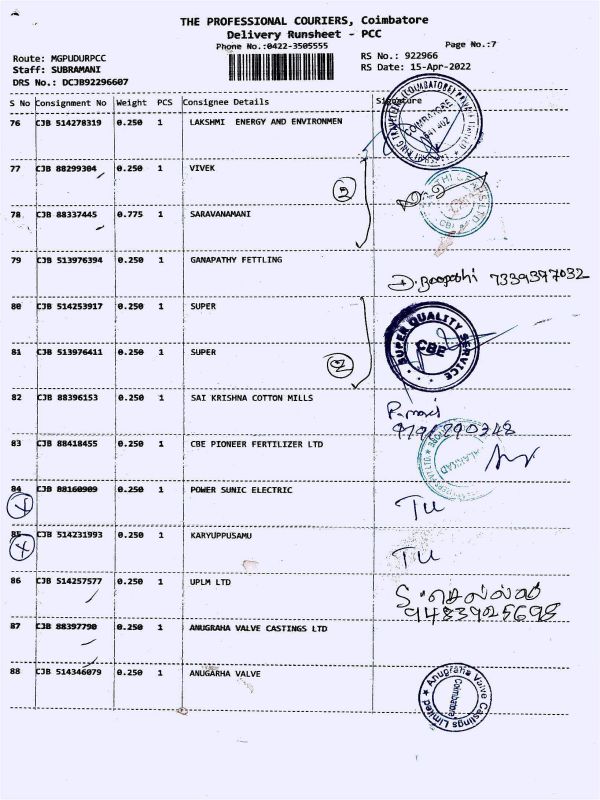 THE PROFESSIONAL COURIERS, Coimbatore
Delivery Runsheet - PCC
Phone No.:0422-3505555
Page No.:7
Route: MGPUDURPCC
RS No.: 922966
Staff: SUBRAMANI
RS Date: 15-Apr-2022
DRS No.: DCJB92296607
S No Consignment No Weight PCS Consignee Details Signature
76 CJB 514278319 0.250 1 LAKSHMI ENERGY AND ENVIRONMEN
77 CJB 88299304 0.250 1 VIVEK
2
78 CJB 88337445 0.775 1 SARAVANAMANI
79 CJB 513976394 0.250 1 GANAPATHY FETTLING
D. Boopathi 7339397032
80 CJB 514253917 0.250 1 SUPER
SUPER QUALITY SERVICE
CBE
81 CJB 513976411 0.250 1 SUPER
2
82 CJB 88396153 0.250 1 SAI KRISHNA COTTON MILLS
83 CJB 88418455 0.250 1 CBE PIONEER FERTILIZER LTD
84 CJB 88160909 0.250 1 POWER SUNIC ELECTRIC
TU
85 CJB 514231993 0.250 1 KARYUPPUSAMU
TU
86 CJB 514257577 0.250 1 UPLM LTD
9483925698
87 CJB 88397790 0.250 1 ANUGRAHA VALVE CASTINGS LTD
88 CJB 514346079 0.250 1 ANUGARHA VALVE
Anugraha Valve Castings Limited
Coimbatore